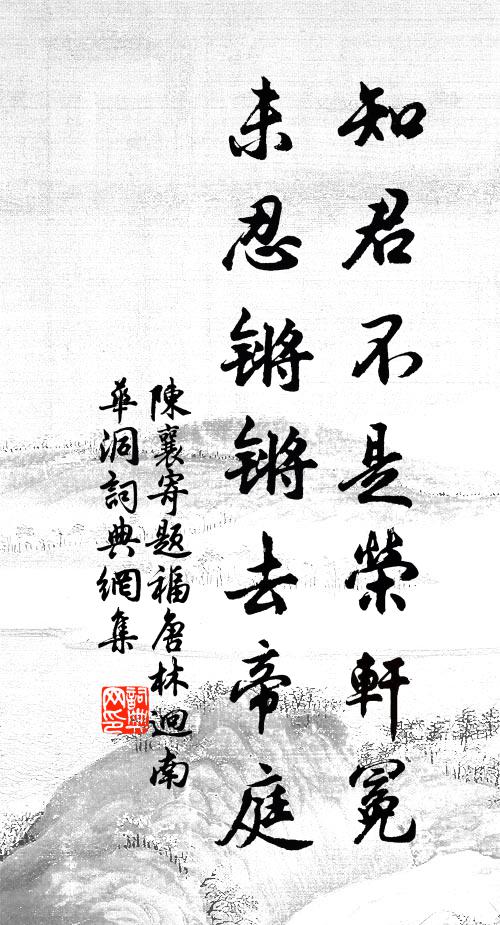 知君不是榮軒冕
未忍鏘鏘去帝庭
陳襄寄題福唐林迥南
華洞詞典網集
詞典
网印